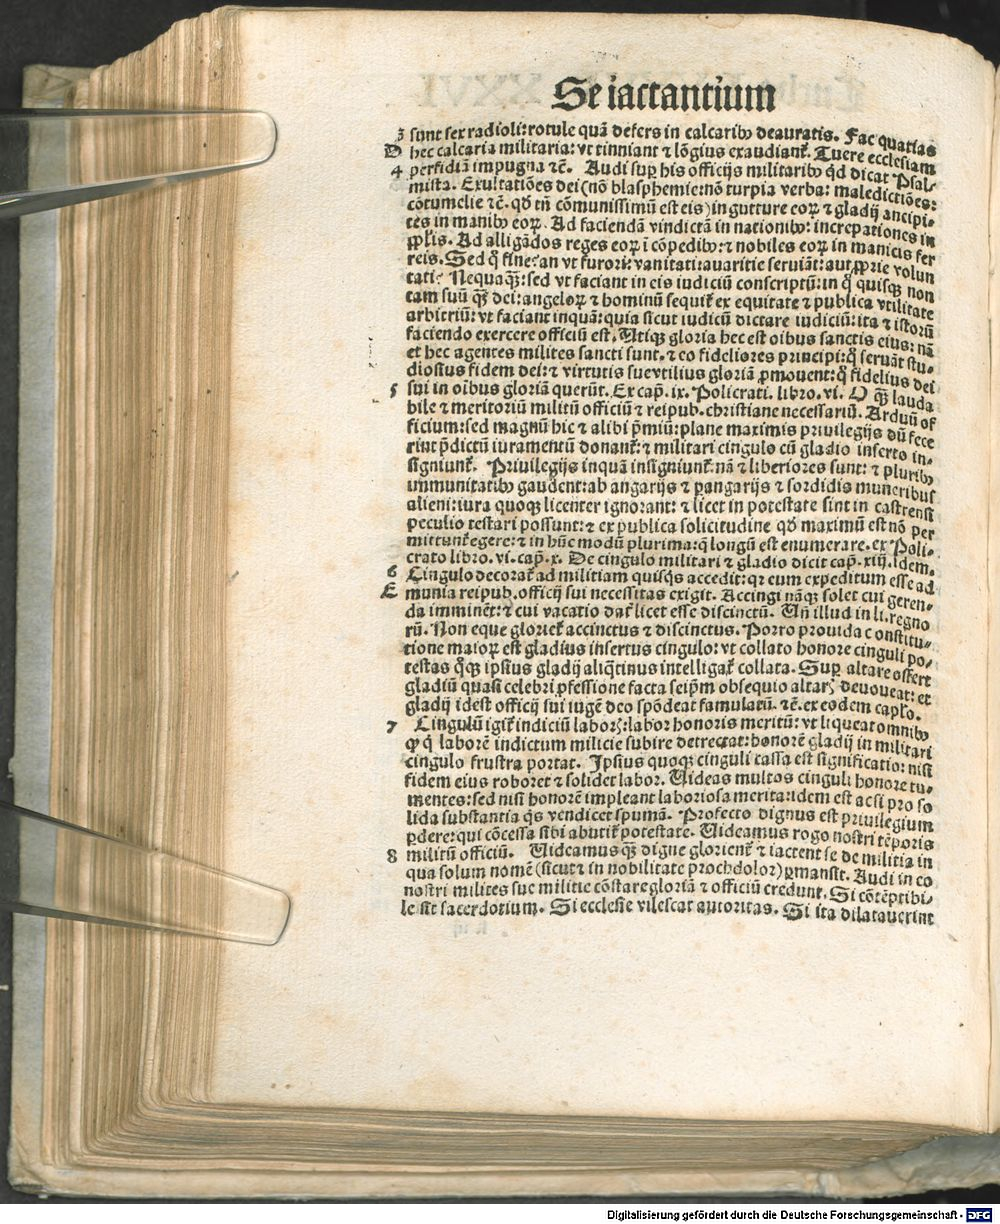 Se iactantium
3 sunt sex radioli: rotule quā defers in calcarib⁹ deauratis. Fac quatias
D hec calcaria militaria: vt tinniant ⁊ lōgius exaudianť. Tuere ecclesiam
4 perfidiā impugna ⁊c̄. Audi suꝑ his officijs militarib⁹ qd dicat Psal-
mista. Exultatiōes dei (nō blasphemie: nō turpia verba: maledictiōes:
cōtumelie ⁊c̄. qđ tñ cōmunissimū est eis) in gutture eoꝝ ⁊ gladij ancipi-
tes in manib⁹ eoꝝ. Ad faciendā vindictā in nationib⁹: increpationes in
pp̄lis. Ad alligādos reges eoꝝ ī cōpedib⁹: ⁊ nobiles eoꝝ in manicis fer
reis. Sed q̊ fine: an vt furori: vanitati: auaritie seruiāt: aut ꝓprie volun
tati? Nequaq̄ꝫ: sed vt faciant in eis iudiciū conscriptū: in q̊ quisqꝫ non
tam suū q̄ꝫ dei: angeloꝝ ⁊ hominū sequiť ex equitate ⁊ publica vtilitate
arbitriū: vt faciant inquā: quia sicut iudicū dictare iudiciū: ita ⁊ istorū
faciendo exercere officiū est. Utiqꝫ gloria hec est oībus sanctis eius: nā
et hec agentes milites sancti sunt. ⁊ eo fideliores principi: q̊ seruāt stu-
diosius fidem dei: ⁊ virtutis sue vtilius gloriā ꝓmouent: q̊ fidelius dei
5 sui in oībus gloriā querūt. Ex cap̄. ix. Policrati. libro. vi. O q̄ꝫ lauda
bile ⁊ meritoriū militū officiū ⁊ reipub. christiane necessariū. Arduū of
ficium: sed magnū hic ⁊ alibi p̄miū: plane maximis priuilegijs dū fece
rint p̄dictū iuramentū donanť: ⁊ militari cingulo cū gladio inserto in-
signiunť. Priuilegijs inquā insigniunť: nā ⁊ liberiores sunt: ⁊ plurib⁹
immunitatib⁹ gaudent: ab angarijs ⁊ ꝑangarijs ⁊ sordidis muneribus
alieni: iura quoqꝫ licenter ignorant: ⁊ licet in potestate sint in castrensi
peculio testari possunt: ⁊ ex publica solicitudine qđ maximū est nō per
mittunť egere: ⁊ in hūc modū plurima: q̄ longū est enumerare. ex Poli-
crato libro. vi. cap̄. x. De cingulo militari ⁊ gladio dicit cap̄. xiij. Idem.
6 Cingulo decorať ad militiam quisq̄s accedit: qꝛ eum expeditum esse ad
E munia reipub. officij sui necessitas exigit. Accingi nāqꝫ solet cui geren-
da imminēt: ⁊ cui vacatio dať licet esse discinctū. Uñ illud in li. regno
rū. Non eque glorieť accinctus ⁊ discinctus. Porro prouida constitu-
tione maioꝝ est gladius insertus cingulo: vt collato honore cinguli po-
testas q̄qꝫ ipsius gladij aliq̄tinus intelligať collata. Suꝑ altare offert
gladiū quasi celebri ꝓfessione facta seip̄m obsequio altarꝭ deuoueat: et
gladij idest officij sui iugē deo spōdeat famulatū. ⁊c̄. ex eodem cap̄lo.
7 Cingulū igiť indiciū laborꝭ: labor honoris meritū: vt liqueat omnib⁹
qꝙ q̇ laborē indictum milicie subire detrectat: honorē gladij in militari
cingulo frustra portat. Ipsius quoqꝫ cinguli cassa est significatio: nisi
fidem eius roboret ⁊ solidet labor. Uideas multos cinguli honore tu-
mentes: sed nisi honorē impleant laboriosa merita: idem est acsi pro so
lida substantia q̇s vendicet spumā. Profecto dignus est priuilegium
ꝑdere: qui cōcessa sibi abutiť potestate. Uideamus rogo nostri tēporis
8 militū officiū. Uideamus q̄ꝫ digne glorienť ⁊ iactent se de militia in
qua solum nomē (sicut ⁊ in nobilitate prochdolor) ꝑmansit. Audi in co
nostri milites sue militie cōstare gloriā ⁊ officiū credunt. Si cōtēptibi-
le sit sacerdotium. Si ecclesie vilescat autoritas. Si ita dilatauerint
Digitalisierung gefördert durch die Deutsche Forschungsgemeinschaft - DFG